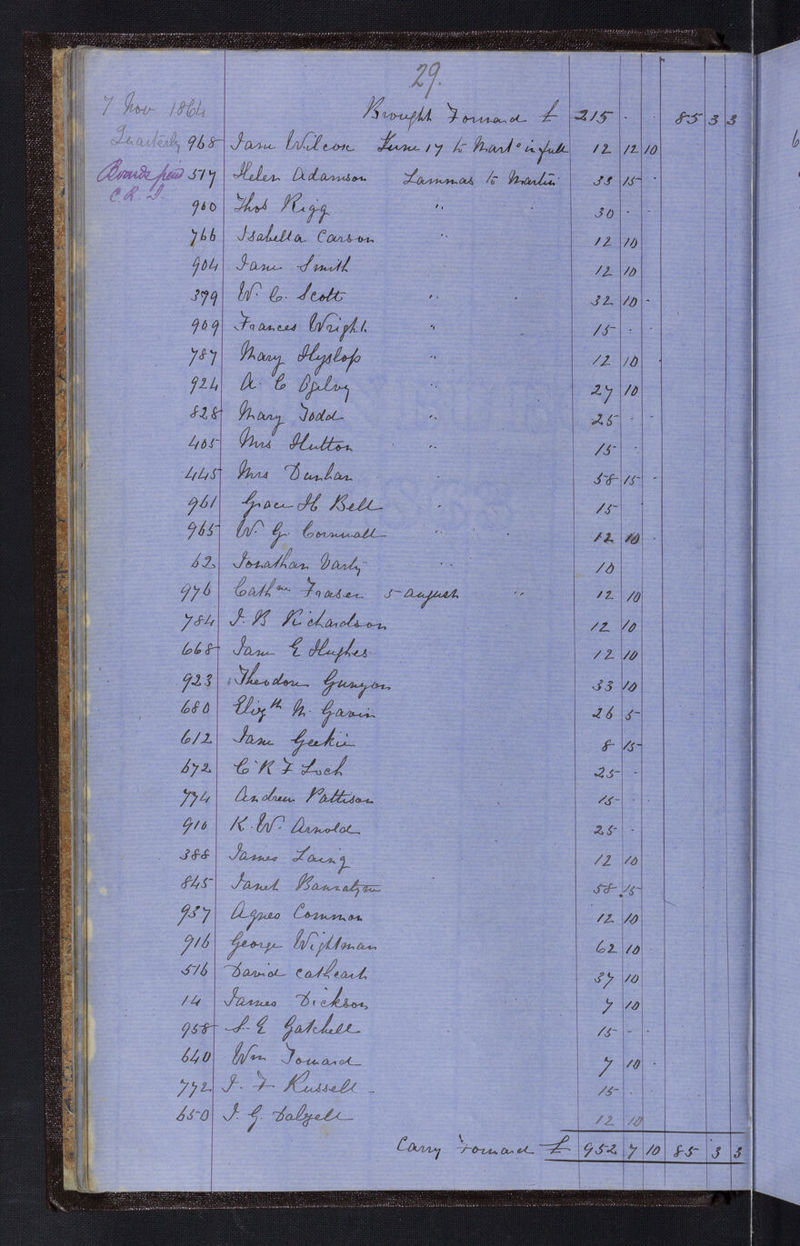 29.
7 Nov 1864 Brought Forward £ 215 . . 85 3 3
Quarterly 968 Jane Wilcox June 17 to Mart s in full 12 12 10
Boards paid 517 Helen Adamson Lammas to Martin s 33 15 .
C.R.I.
900 Thos Rigg " 30 . .
766 Isabella Carson " 12 10
904 Jane Smith 12 10
379 W. C. Scott " 32 10 -
909 Frances Wright " 15 . .
787 Mary Hyslop " 12 10 .
924 A. C Ogilvy " 27 10
828 Mary Todd " 25 . .
405 Mrs Hutton " 15 .
445 Mrs Dunbar 58 15 -
961 Grace H Bell " 15
965 W. G. Cornwall " 12 10 .
62 Jonathan Varty " 10
976 Cathne Fraser 5 August " 12 10
784 J. B Richardson 12 10
668 Jane E Hughes 12 10
923 Theodore Gunyon 33 10
680 Elizth M. Gavin 26 5
612 Jane Geekie 8 15
672 C R F Loch 25 .
774 Andrew Pattison 15 . .
910 K. W. Arnold 25 .
388 James Laing 12 10
845 Janet Bannatyne 58 15
937 Agnes Common 12 10
916 George Wightman 62 10
516 David Cathcart 37 10
14 James Dickson 7 10
958 S. E Gatchell 15 - .
640 Wm Toward 7 10 .
772 J. F. Russell 15 .
650 J. G. Dalzell 12 10
Carry Forward £ 952 7 10 85 3 3